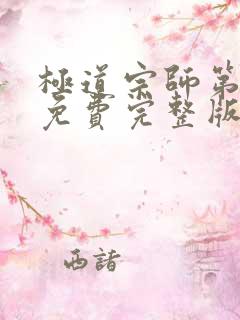 極道宗師第
免費完整版
西諸